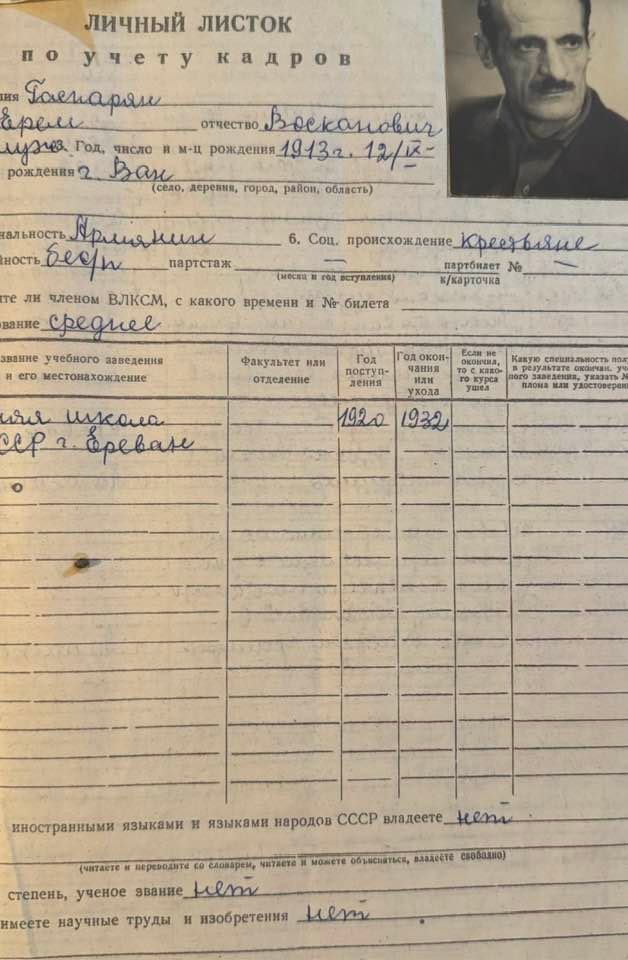 ЛИЧНЫЙ ЛИСТОК
по учету кадров
лия Гаспарян
Ерем отчество Восканович
муж. Год, число и м-ц рождения 1913 г. 12/IX-
рождения г. Ван
(село, деревня, город, район, область)
нальность Армянин 6. Соц. происхождение крестьяне
йность бес/п партстаж — партбилет № —
(месяц и год вступления) к/карточка
те ли членом ВЛКСМ, с какого времени и № билета
ование среднее
звание учебного заведения и его местонахождение
Факультет или отделение
Год поступ-ления
Год окон-чания или ухода
Если не окончил, то с како-го курса ушел
Какую специальность пол в результате окончан. уче ного заведения, указать № плома или удостоверен
няя школа 1920 1932
ССР г. Ереван
иностранными языками и языками народов СССР владеете нет
(читаете и переводите со словарем, читаете и можете объясняться, владеете свободно)
степень, ученое звание нет
имеете научные труды и изобретения нет